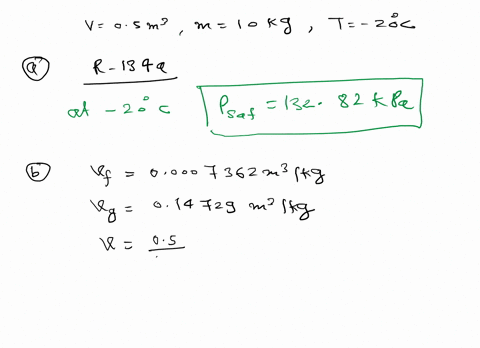 V = 0.5 m³, m = 10 kg, T = -20°C
ⓐ R-134a
at -20°C Psat = 132.82 kPa
ⓑ vf = 0.0007362 m³/kg
vg = 0.14729 m³/kg
v = 0.5